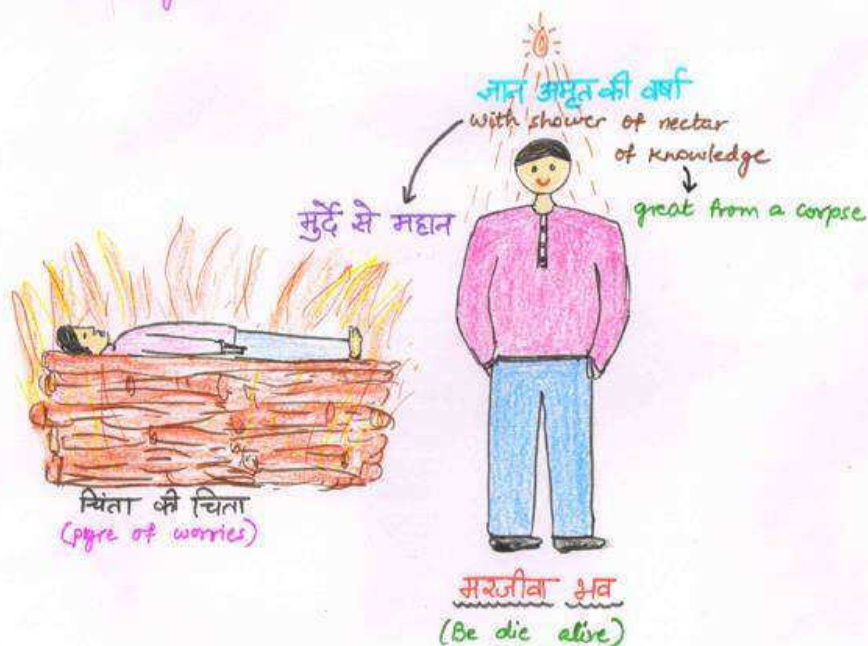 ज्ञान अमृत की वर्षा
with shower of nectar
of knowledge
मुर्दे से महान
great from a corpse
चिंता की चिता
(pyre of worries)
मरजीवा भव
(Be die alive)